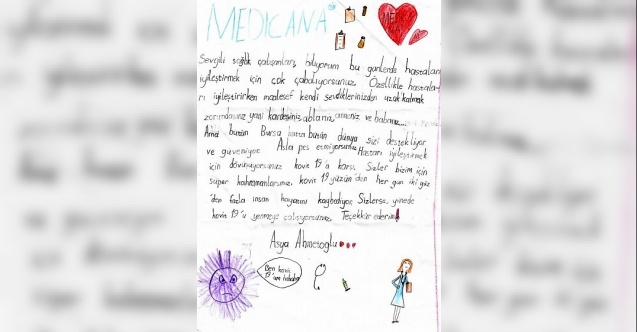 MEDICANA
MEDI
Sevgili sağlık çalışanları, biliyorum bu günlerde hastaları
iyileştirmek için çok çabalıyorsunuz. Özellikle hastala-
rı iyileştirirken maalesef kendi sevdiklerinizden uzak kalmak
zorundasınız yani kardeşiniz ablanız, anneniz ve babanız...
Ama bütün Bursa hatta bütün dünya sizi destekliyor
ve güveniyor. Asla pes etmiyorsunuz. Hastaları iyileştirmek
için dövünüyorsunuz kovit 19'a karşı. Sizler bizim için
süper kahramanlarsınız. kovit 19 yüzünden her gün iki yüz
'den fazla insan hayatını kaybediyor. Sizlerse yinede
kovit 19'u yenmeye çalışıyorsunuz. Teşekkür ederim!
Asya Ahmetoğlu
Ben kovit
19'um